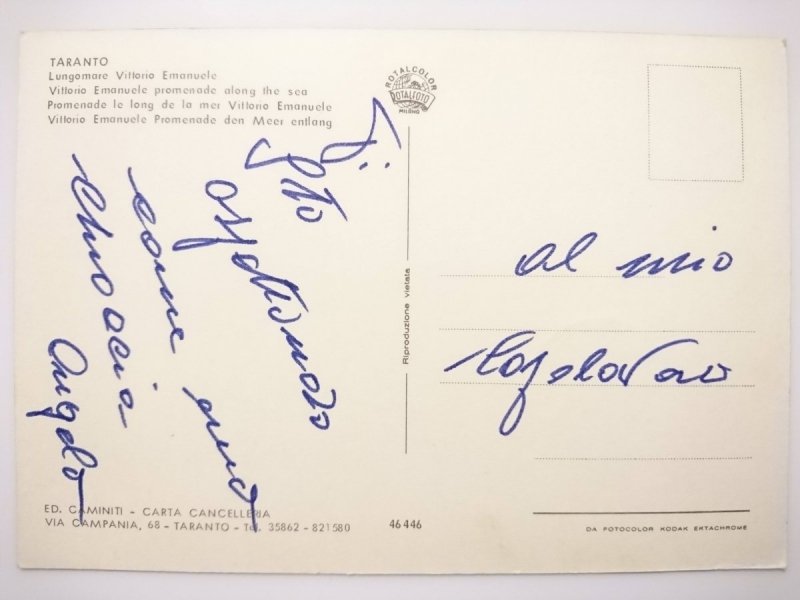 TARANTO
Lungomare Vittorio Emanuele
Vittorio Emanuele promenade along the sea
Promenade le long de la mer Vittorio Emanuele
Vittorio Emanuele Promenade den Meer entlang
ROTALCOLOR
ROTALFOTO
MILANO
Ti
sto
aspettando
come una
Angelo
Riproduzione vietata
al mio
ED. CAMINITI - CARTA CANCELLERIA
VIA CAMPANIA, 68 - TARANTO - Tel. 35862 - 821580
46446
DA FOTOCOLOR KODAK EKTACHROME